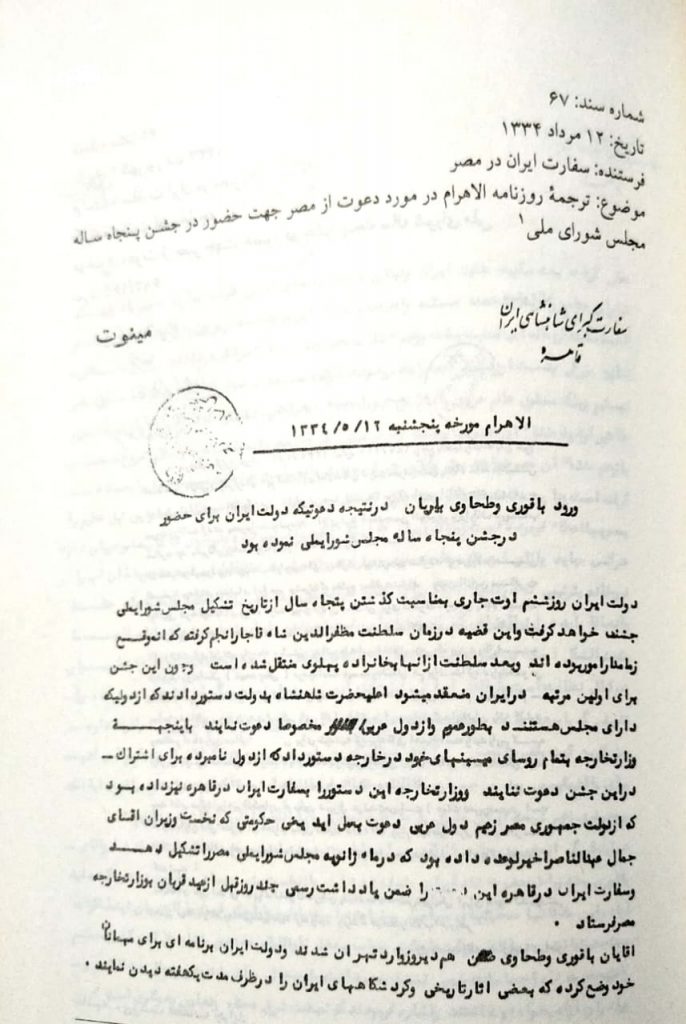 شماره سند: ۶۷
تاریخ: ۱۲ مرداد ۱۳۳۴
فرستنده: سفارت ایران در مصر
موضوع: ترجمهٔ روزنامه الاهرام در مورد دعوت از مصر جهت حضور در جشن پنجاه ساله
مجلس شورای ملی۱
سفارت کبرای شاهنشاهی ایران
قاهره
مینوت
الاهرام مورخه پنجشنبه ۱۳۳٤/٥/۱۲
ورود باقوری وطحاوی بایران درنتیجه دعوتیکه دولت ایران برای حضور
درجشن پنجاه ساله مجلس شورایملی نموده بود
دولت ایران روزششم اوت جاری بمناسبت گذشتن پنجاه سال ازتاریخ تشکیل مجلس شورایملی
جشند خواهد گرفت واین قضیه درزمان سلطنت مظفرالدین شاه قاجارانجام گرفته که انموقع
زمامدارامور بوده اند وبعد سلطنت ازانها بخانواده پهلوی منتقل شده است وچون این جشن
برای اولین مرتبه درایران منعقد میشود اعلیحضرت شاهنشاه بدولت دستوردادند که ازدولیکه
دارای مجلس هستند بطورعموم وازدول عربی مخصوصا دعوت نمایند باینجهة
وزارتخارجه بتمام روسای میسیونهای خود درخارجه دستورداد که ازدول نامبرده برای اشتراک
دراین جشن دعوت نمایند ووزارتخارجه این دستوررا بسفارت ایران درقاهره نیزداده بود
که ازدولت جمهوری مصر زعیم دول عربی دعوت بعمل اید یعنی حکومتی که نخست وزیران اقای
جمال عبدالناصراخیرا وعده داده بود که درماه ژانویه مجلس شورایملی مصررا تشکیل دهد
وسفارت ایران درقاهره این را ضمن یادداشت رسمی چند روزقبل ازعید قربان بوزارتخارجه
مصرفرستاد .
اقایان باقوری وطحاوی هم دیروزوارد تهران شدند ودولت ایران برنامه ای برای میهمانان
خود وضع کرده که بعضی اثارتاریخی وگردشگاههای ایران را درظرف مدت یکهفته دیدن نمایند .